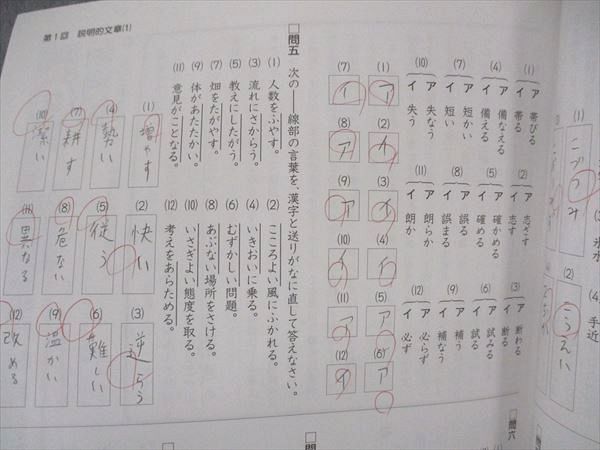 第1回 説明的文章(1)
(1) ア 帯びる イ 帯る
(2) ア 志ざす イ 志す
(3) ア 断わる イ 断る
(4) ア 備なえる イ 備える
(5) ア 確かめる イ 確める
(6) ア 試みる イ 試る
(7) ア 短かい イ 短い
(8) ア 誤る イ 誤まる
(9) ア 補う イ 補なう
(10) ア 失なう イ 失う
(11) ア 朗らか イ 朗か
(12) ア 必らず イ 必ず
(1) ア
(2) イ
(3)
(4) イ
(5) ア
(6) ア
(7) イ
(8) ア
(9) ア
(10) イ
(11) ア
(12) イ
問五 次の――線部の言葉を、漢字と送りがなに直して答えなさい。
(1) 人数をふやす。
(2) こころよい風にふかれる。
(3) 流れにさからう。
(4) いきおいに乗る。
(5) 教えにしたがう。
(6) むずかしい問題。
(7) 畑をたがやす。
(8) あぶない場所をさける。
(9) 体があたたかい。
(10) いさぎよい態度を取る。
(11) 意見がことなる。
(12) 考えをあらためる。
(1) 増やす
(2) 快い
(3) 逆らう
(4) 勢い
(5) 従う
(6) 難しい
(7) 耕す
(8) 危ない
(9) 温かい
(10) 潔い
(11) 異なる
(12) 改める
問六
(1)
こづつみ
(2)
こうえい
(4) 手近